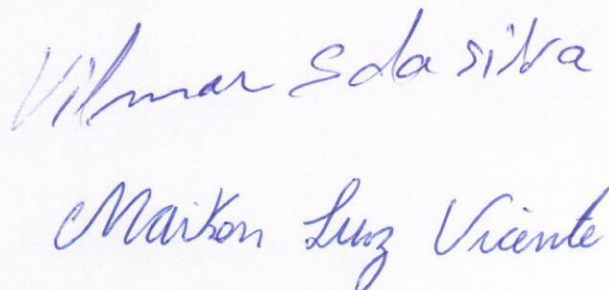 Vilmar S da silva
Maikon Luiz Vicente